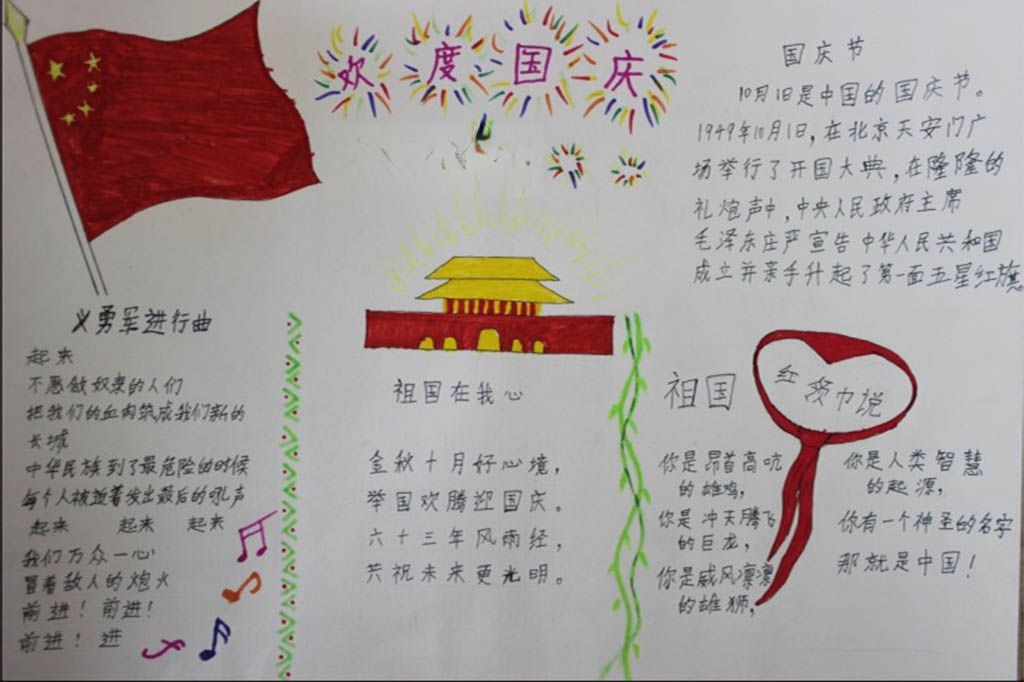 欢度国庆
国庆节
10月1日是中国的国庆节。
1949年10月1日,在北京天安门广
场举行了开国大典,在隆隆的
礼炮声中,中央人民政府主席
毛泽东庄严宣告中华人民共和国
成立并亲手升起了第一面五星红旗
义勇军进行曲
起来
不愿做奴隶的人们
把我们的血肉筑成我们新的
长城
中华民族到了最危险的时候
每个人被迫着发出最后的吼声
起来 起来 起来
我们万众一心
冒着敌人的炮火
前进!前进!
前进!进
祖国在我心
金秋十月好心境,
举国欢腾迎国庆。
六十三年风雨经,
共祝未来更光明。
祖国
红领巾说
你是昂首高吭
的雄鸡,
你是冲天腾飞
的巨龙,
你是威风凛凛
的雄狮,
你是人类智慧
的起源,
你有一个神圣的名字
那就是中国!